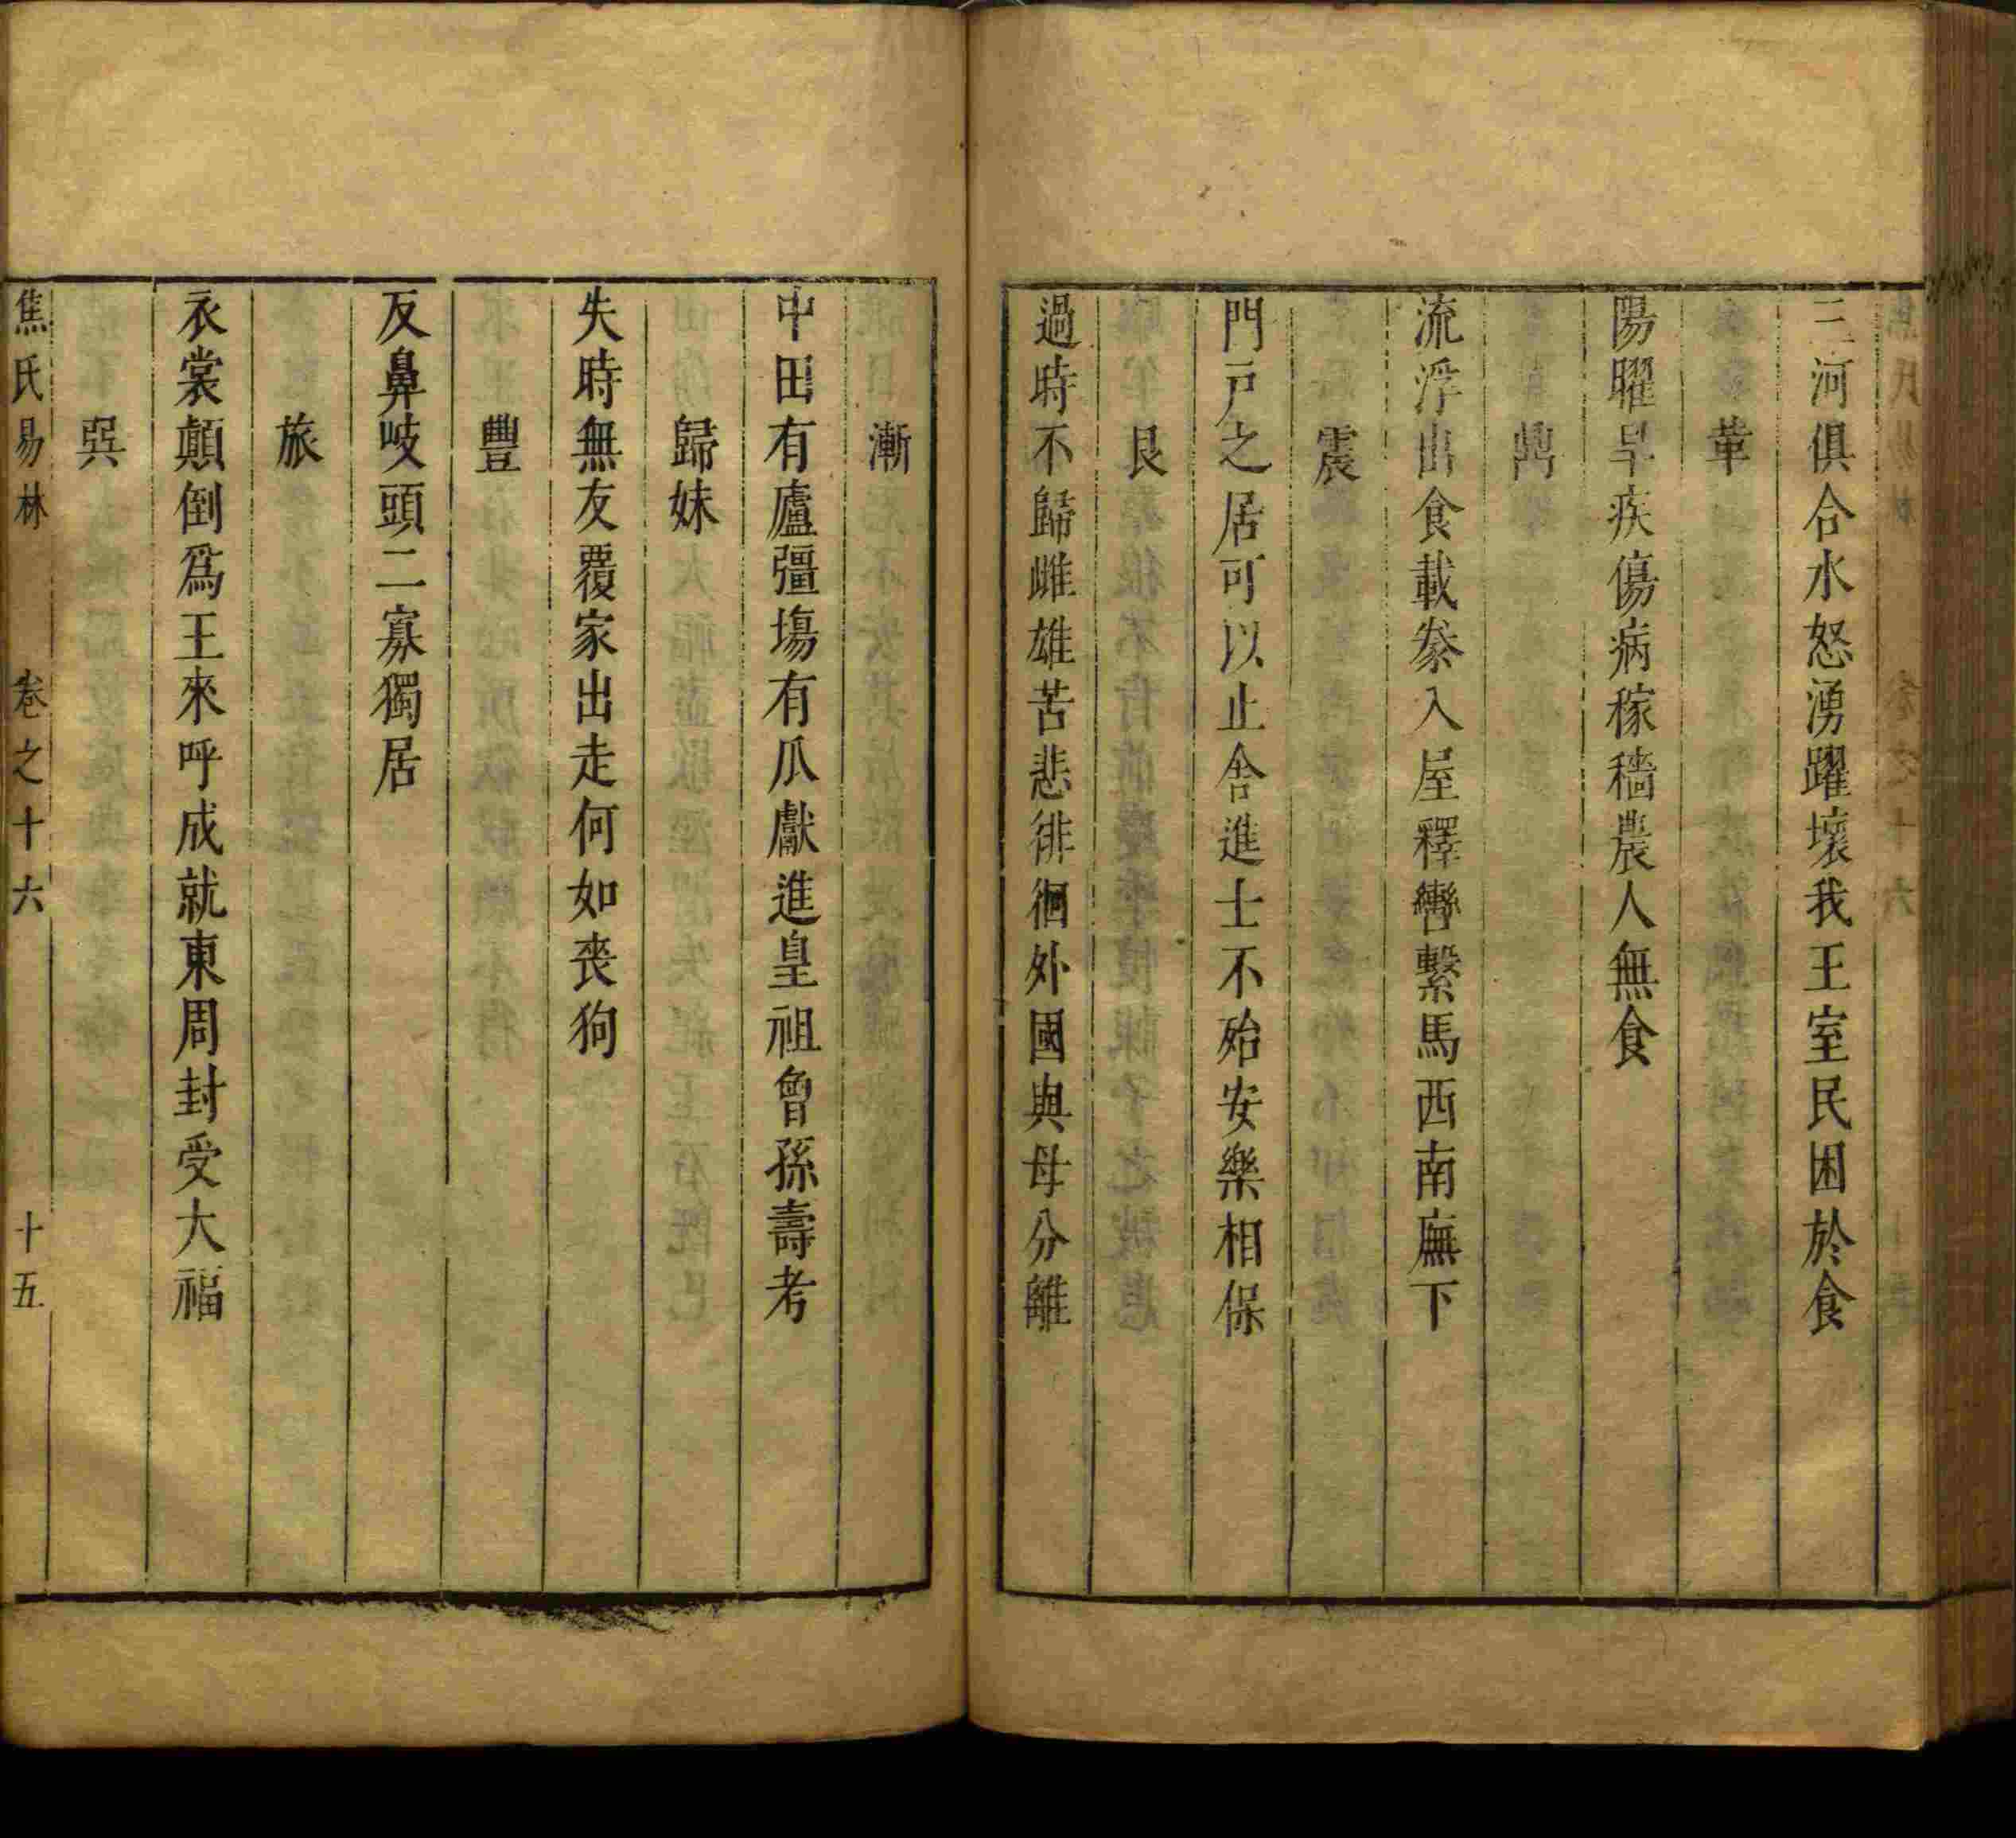 三河俱合水怒湧躍壞我王室民困於食
革
陽曜旱疾傷病稼穡農人無食
鼎
流浮出食載黍入屋釋轡繫馬西南廡下
震
門戸之居可以止舍進士不殆安樂相保
艮
過時不歸雌雄苦悲徘徊外國與母分離
漸
中田有廬彊塲有瓜獻進皇祖曾孫壽考
歸妹
失時無友覆家出走何如喪狗
豐
反鼻岐頭二寡獨居
旅
衣裳顛倒爲王來呼成就東周封受大福
巽
焦氏易林 卷之十六 十五